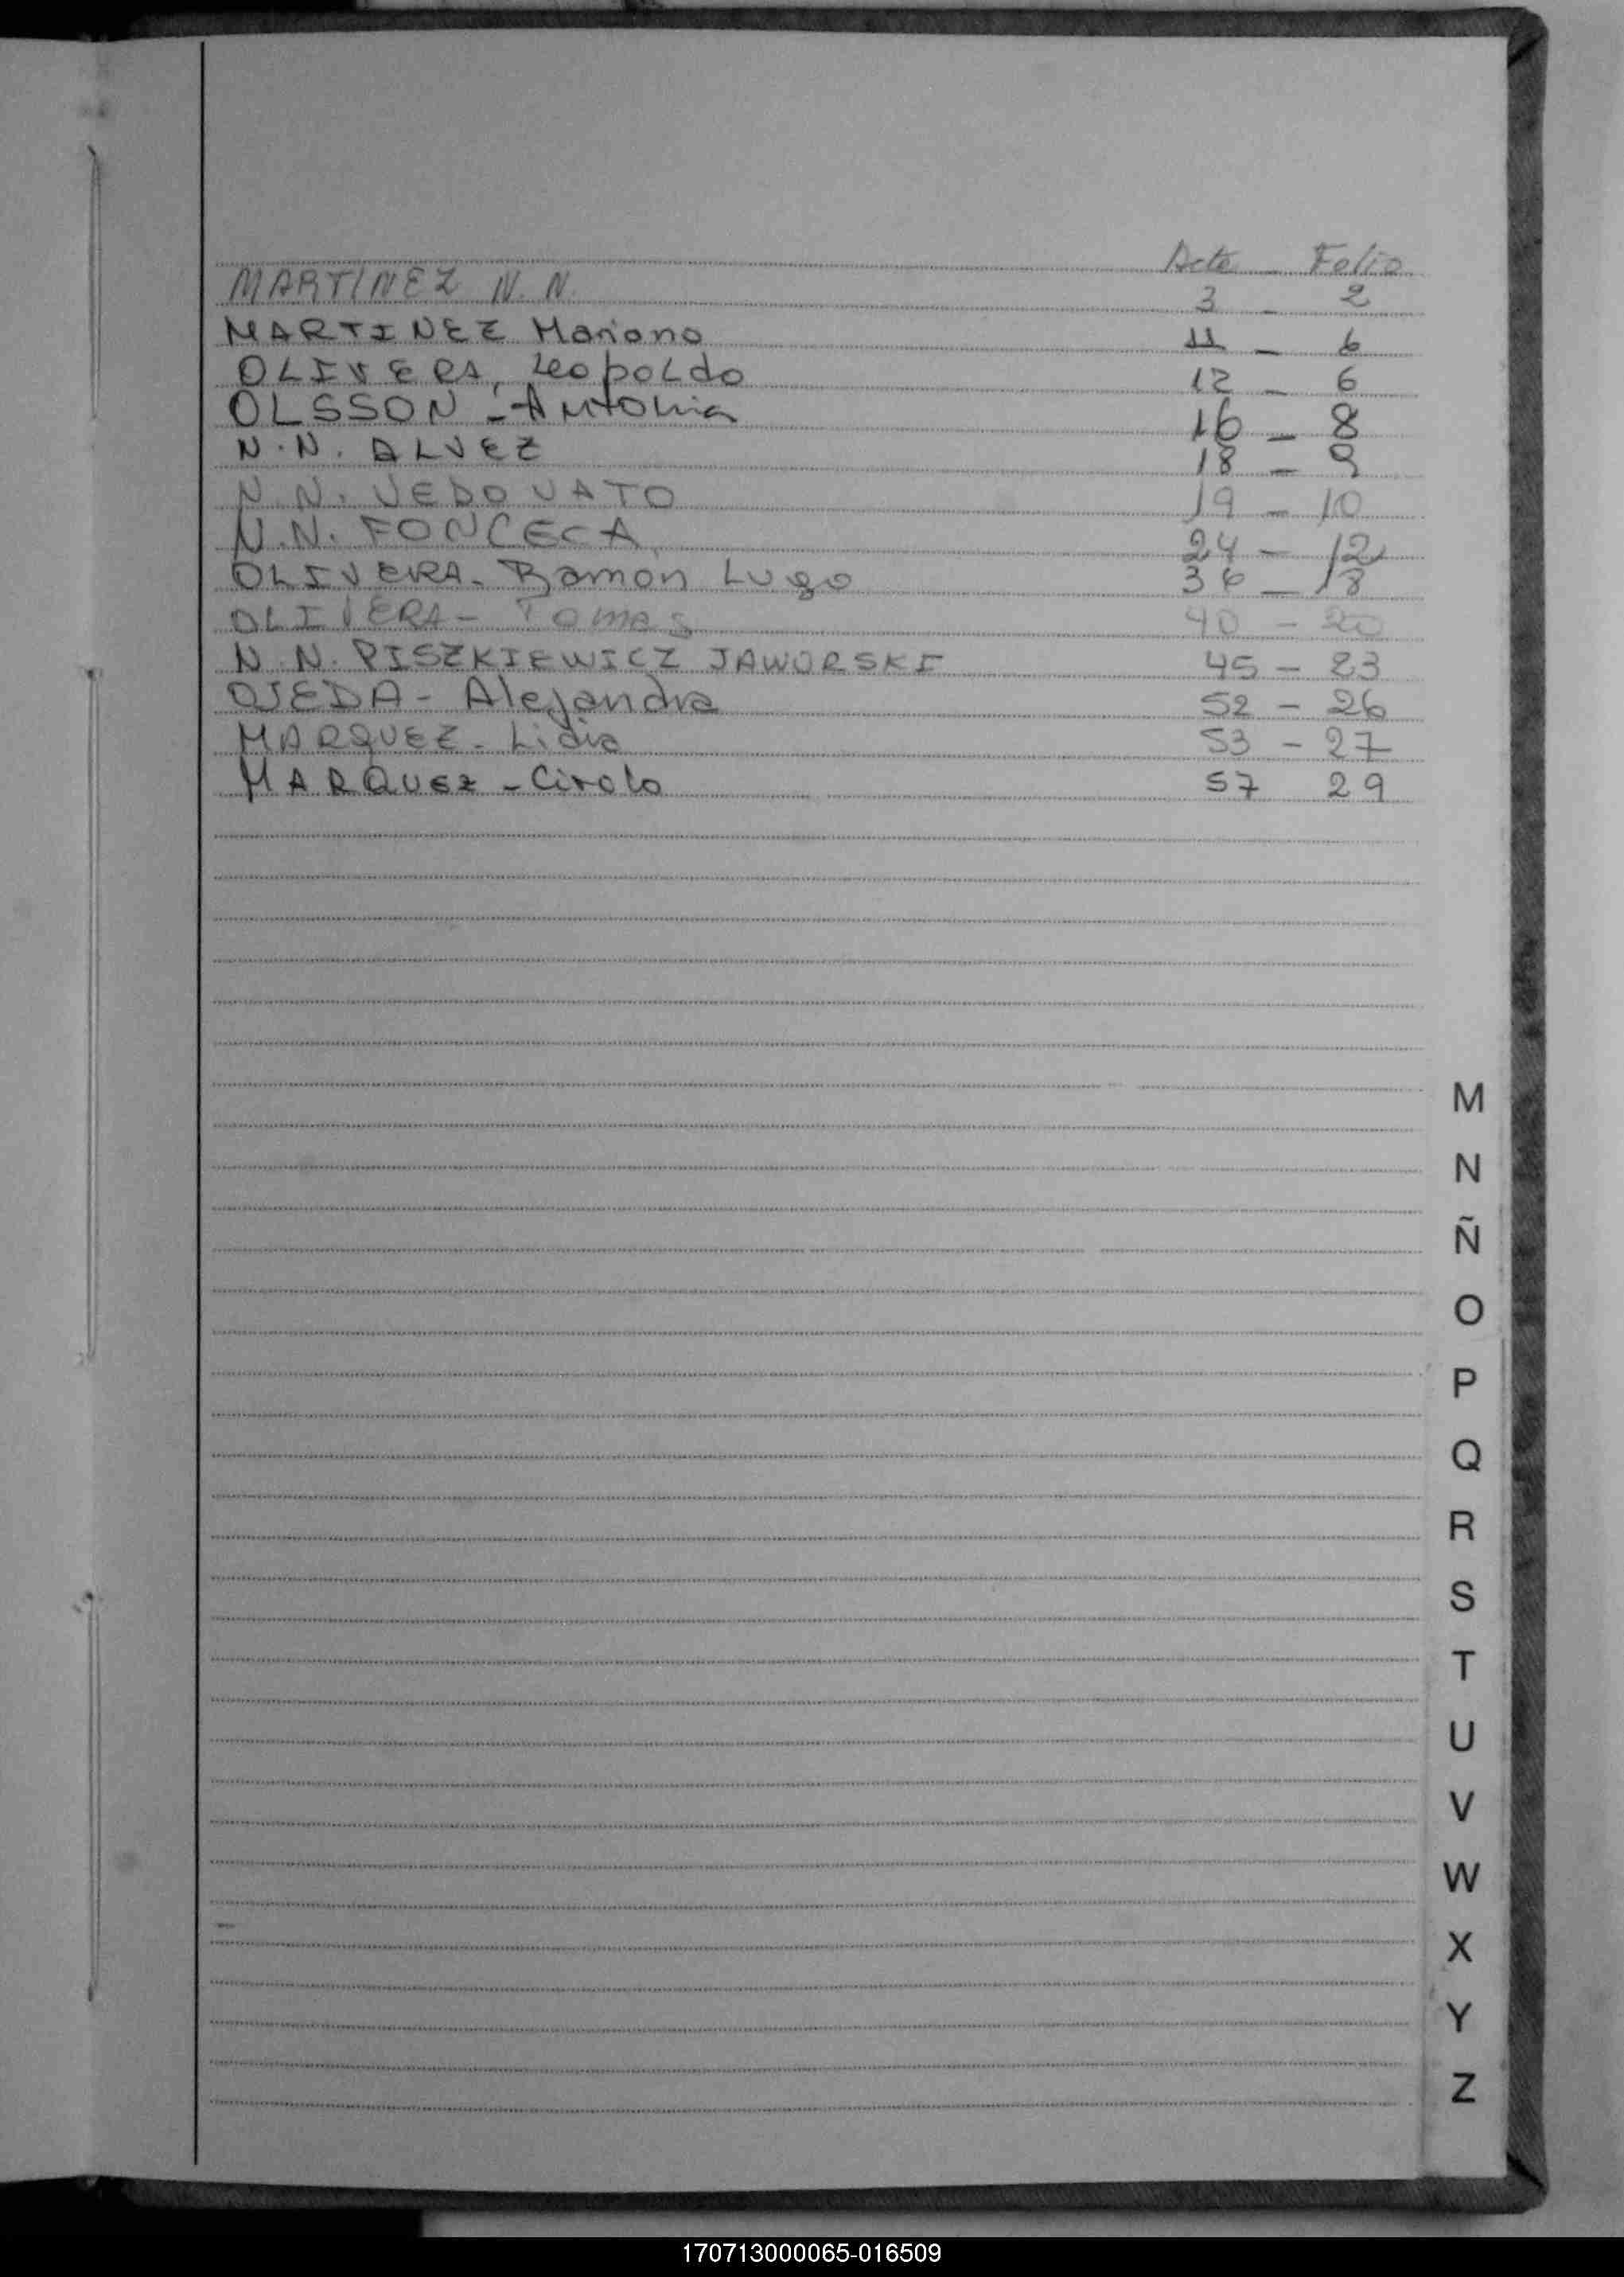 Acta - Folio
MARTINEZ N. N. 3 - 2
MARTINEZ Mariano 11 - 6
OLIVERA, Leopoldo 12 - 6
OLSSON - Antonia 16 - 8
N. N. ALVEZ 18 - 9
N. N. VEDOVATO 19 - 10
N. N. FONCECA 24 - 12
OLIVERA - Ramon Lugo 36 - 18
OLIVERA - Tomas 40 - 20
N. N. PISZKIEWICZ JAWORSKI 45 - 23
OJEDA - Alejandra 52 - 26
MARQUEZ - Lidia 53 - 27
MARQUEZ - Cirolo 57 29
M
N
Ñ
O
P
Q
R
S
T
U
V
W
X
Y
Z
170713000065-016509